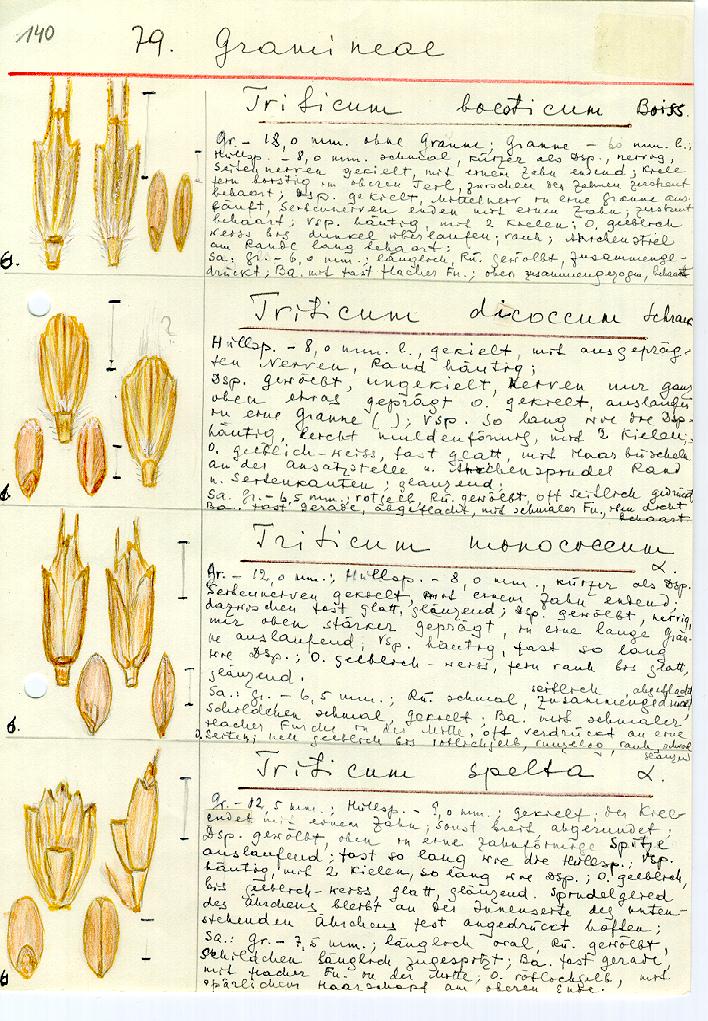 140
79. Gramineae
Triticum boeoticum Boiss.
Gr. - 13,0 mm. ohne Granne; Granne - 60 mm. l.;
Hüllsp. - 8,0 mm. schmal, kürzer als Dsp., nervig,
Seitennerven gekielt, mit einem Zahn endend; Kiele
fein borstig im oberen Teil, zwischen den Zähnen zerstreut
behaart; Dsp. gekielt, Mittelnerv in eine Granne aus-
läuft, Seitennerven enden mit einem Zahn; zerstreut
behaart; Vsp. häutig mit 2 Kielen; O. gelblich
weiss bis dunkel überlaufen; rauh; Ährchenstiel
am Rande lang behaart;
Sa. gr. - 6,0 mm.; länglich, Rü. gewölbt, zusammenge-
drückt; Ba. mit fast flacher Fu.; oben zusammengezogen, behaart
6.
Triticum dicoccum Schrank
Hüllsp. - 8,0 mm. l., gekielt, mit ausgepräg-
ten Nerven, Rand häutig;
Dsp. gewölbt, ungekielt, Nerven nur ganz
oben etwas geprägt o. gekielt, auslaufend
in eine Granne ( ); Vsp. so lang wie die Dsp.
häutig, leicht muldenförmig, mit 2 Kielen;
O. gelblich-weiss, fast glatt, mit Haarbüscheln
an der Ansatzstelle u. Ährchenspindel Rand
u. Seitenkanten; glänzend;
Sa. gr. - 6,5 mm.; rotgelb, Rü. gewölbt, oft seitlich gedrückt
Ba. fast gerade, abgeflacht, mit schmaler Fu., oben dicht
behaart
?
6.
Triticum monococcum L.
Gr. - 12,0 mm.; Hüllsp. - 8,0 mm., kürzer als Dsp.
Seitennerven gekielt, mit einem Zahn endend;
dazwischen fast glatt, glänzend; Dsp. gewölbt, nervig,
nur oben stärker geprägt, in eine lange Gran-
ne auslaufend; Vsp. häutig, fast so lang
wie Dsp.; O. gelblich-weiss, fein rauh bis glatt,
glänzend.
Sa.: gr. - 6,5 mm.; Rü. schmal, seitlich abgeflacht zusammengedrückt
Schildchen schmal, gekielt; Ba. mit schmaler
flacher Furche in der Mitte, oft verdrückt an eine
Seite; hell gelblich bis rötlichgelb, runzelig, rauh, schwach
glänzend
6.
Triticum spelta L.
Gr. - 12,5 mm.; Hüllsp. - 9,0 mm.; gekielt; der Kiel
endet mit einem Zahn; sonst breit, abgerundet;
Dsp. gewölbt, oben in eine zahnförmige Spitze
auslaufend; fast so lang wie die Hüllsp.; Vsp.
häutig, mit 2 Kielen, so lang wie Dsp.; O. gelblich,
bis gelblich-weiss glatt, glänzend. Spindelglied
des Ährchens bleibt an der Innenseite des unten-
stehenden Ährchens fest angedrückt haften;
Sa.: gr. - 7,5 mm.; länglich oval, Rü. gewölbt,
Schildchen länglich zugespitzt; Ba. fast gerade,
mit flacher Fu. in der Mitte; O. rötlichgelb, mit
spärlichem Haarschopf am oberen Ende.
6